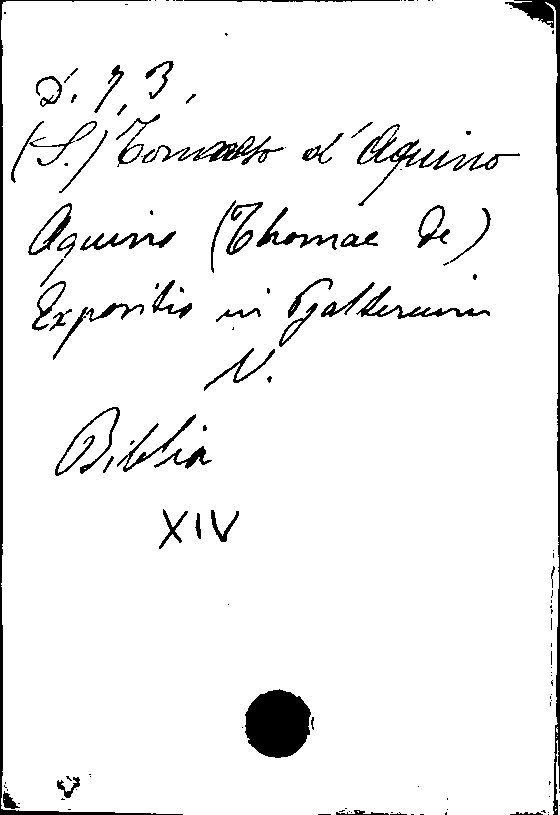 D. 7, 3,
(S.) Tomaso d'Aquino
Aquino (Thomae de)
Expositio in Psalterium
V.
Biblia
XIV